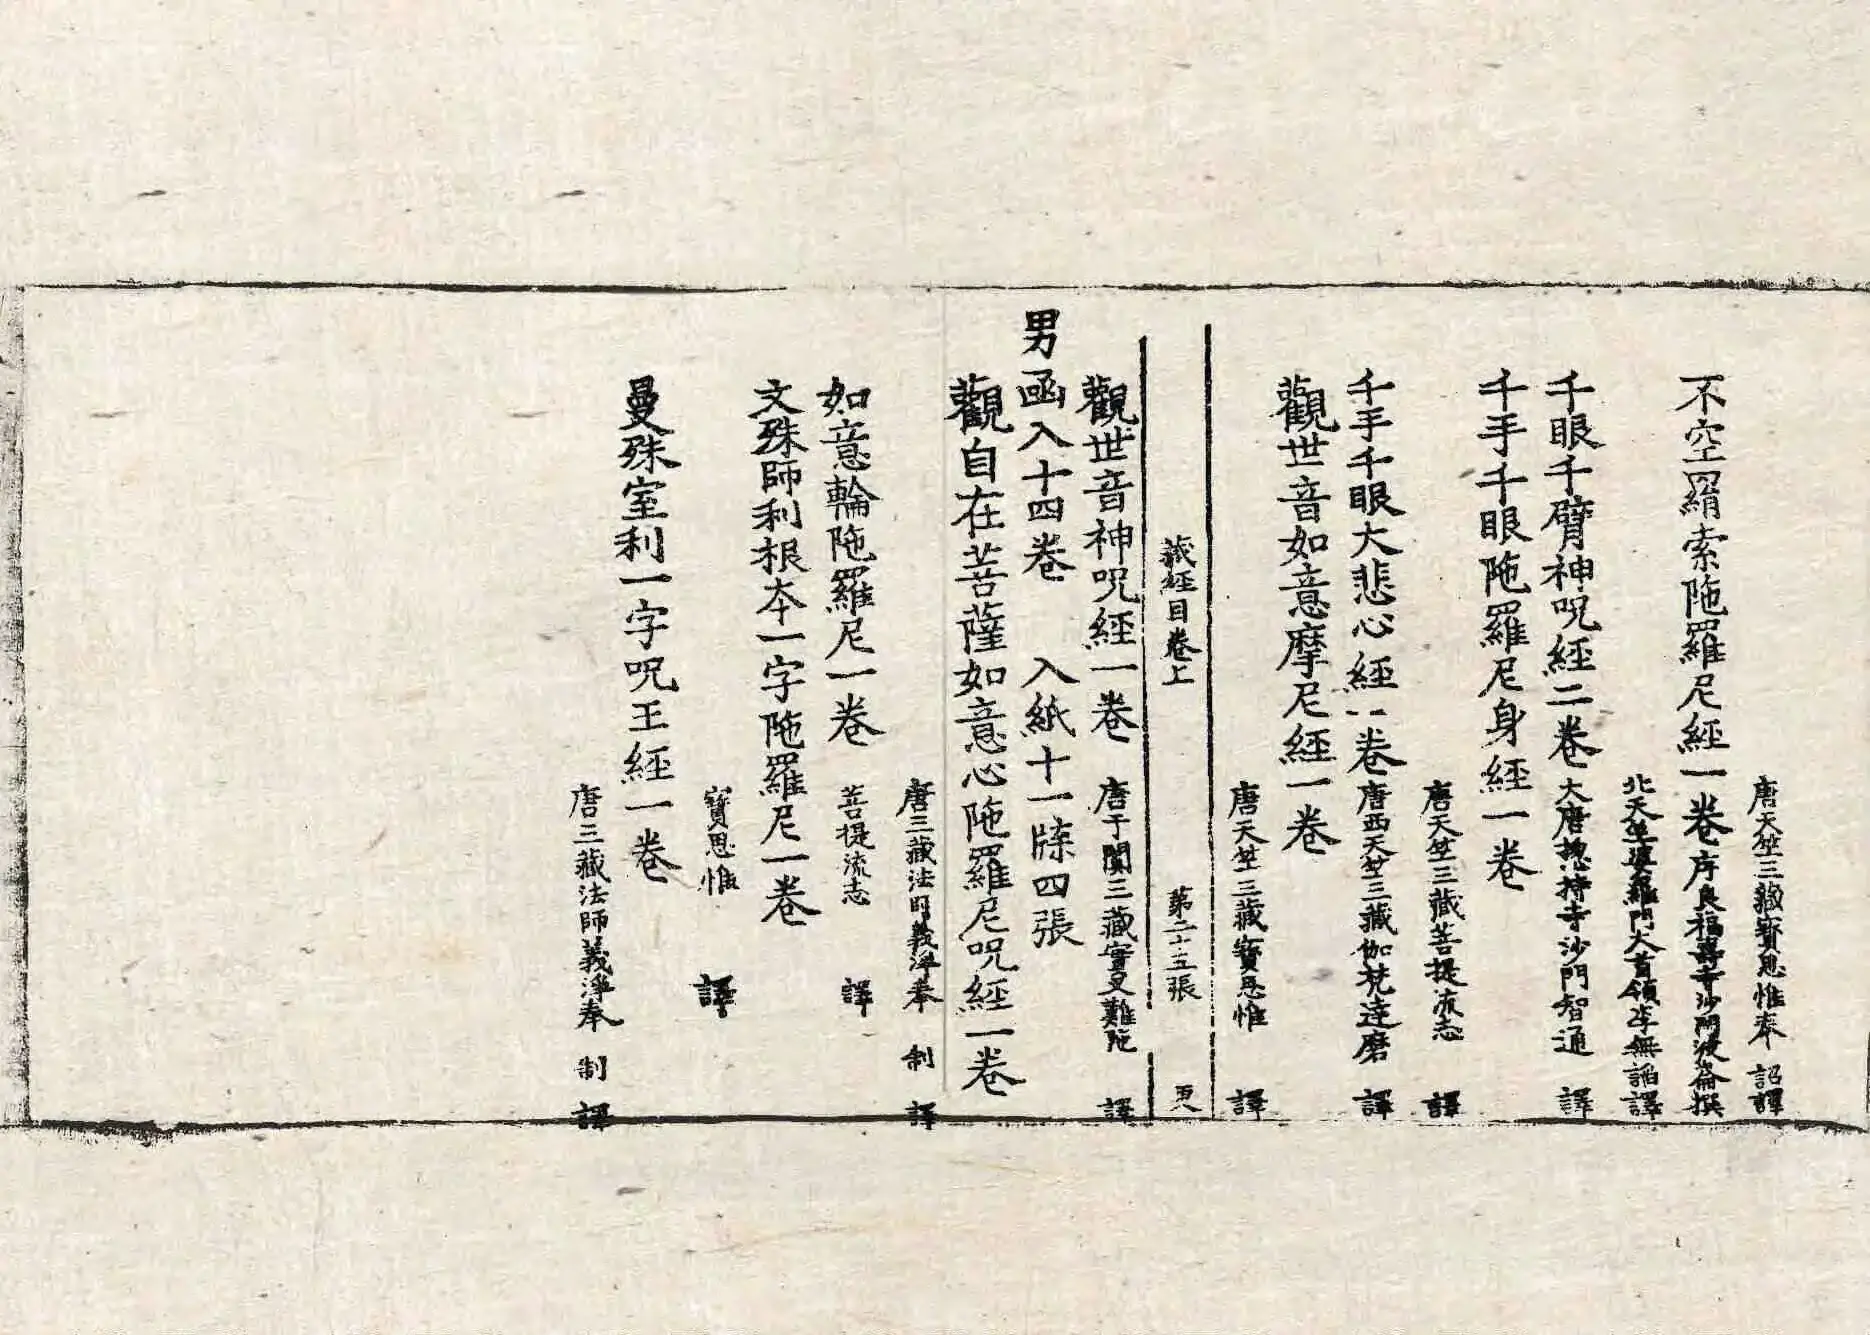 唐天竺三藏寶思惟奉 詔譯
不空羂索陁羅尼經一卷序良福壽寺沙門波崙撰
北天竺婆羅門大首領李無諂譯
千眼千臂神呪經二卷大唐捴持寺沙門智通 譯
千手千眼陁羅尼身經一卷
唐天竺三藏菩提流志 譯
千手千眼大悲心經一卷唐西天竺三藏伽梵達磨 譯
觀世音如意摩尼經一卷
唐天竺三藏寶思惟 譯
藏經目卷上 第二十五張
觀世音神呪經一卷 唐于闐三藏實叉難陁 譯
男函入十四卷 入紙十一牒四張
觀自在菩薩如意心陁羅尼呪經一卷
唐三藏法師義淨奉 制 譯
如意輪陁羅尼一卷 菩提流志 譯
文殊師利根夲一字陁羅尼一卷
寶思惟 譯
曼殊室利一字呪王經一卷
唐三藏法師義淨奉 制 譯